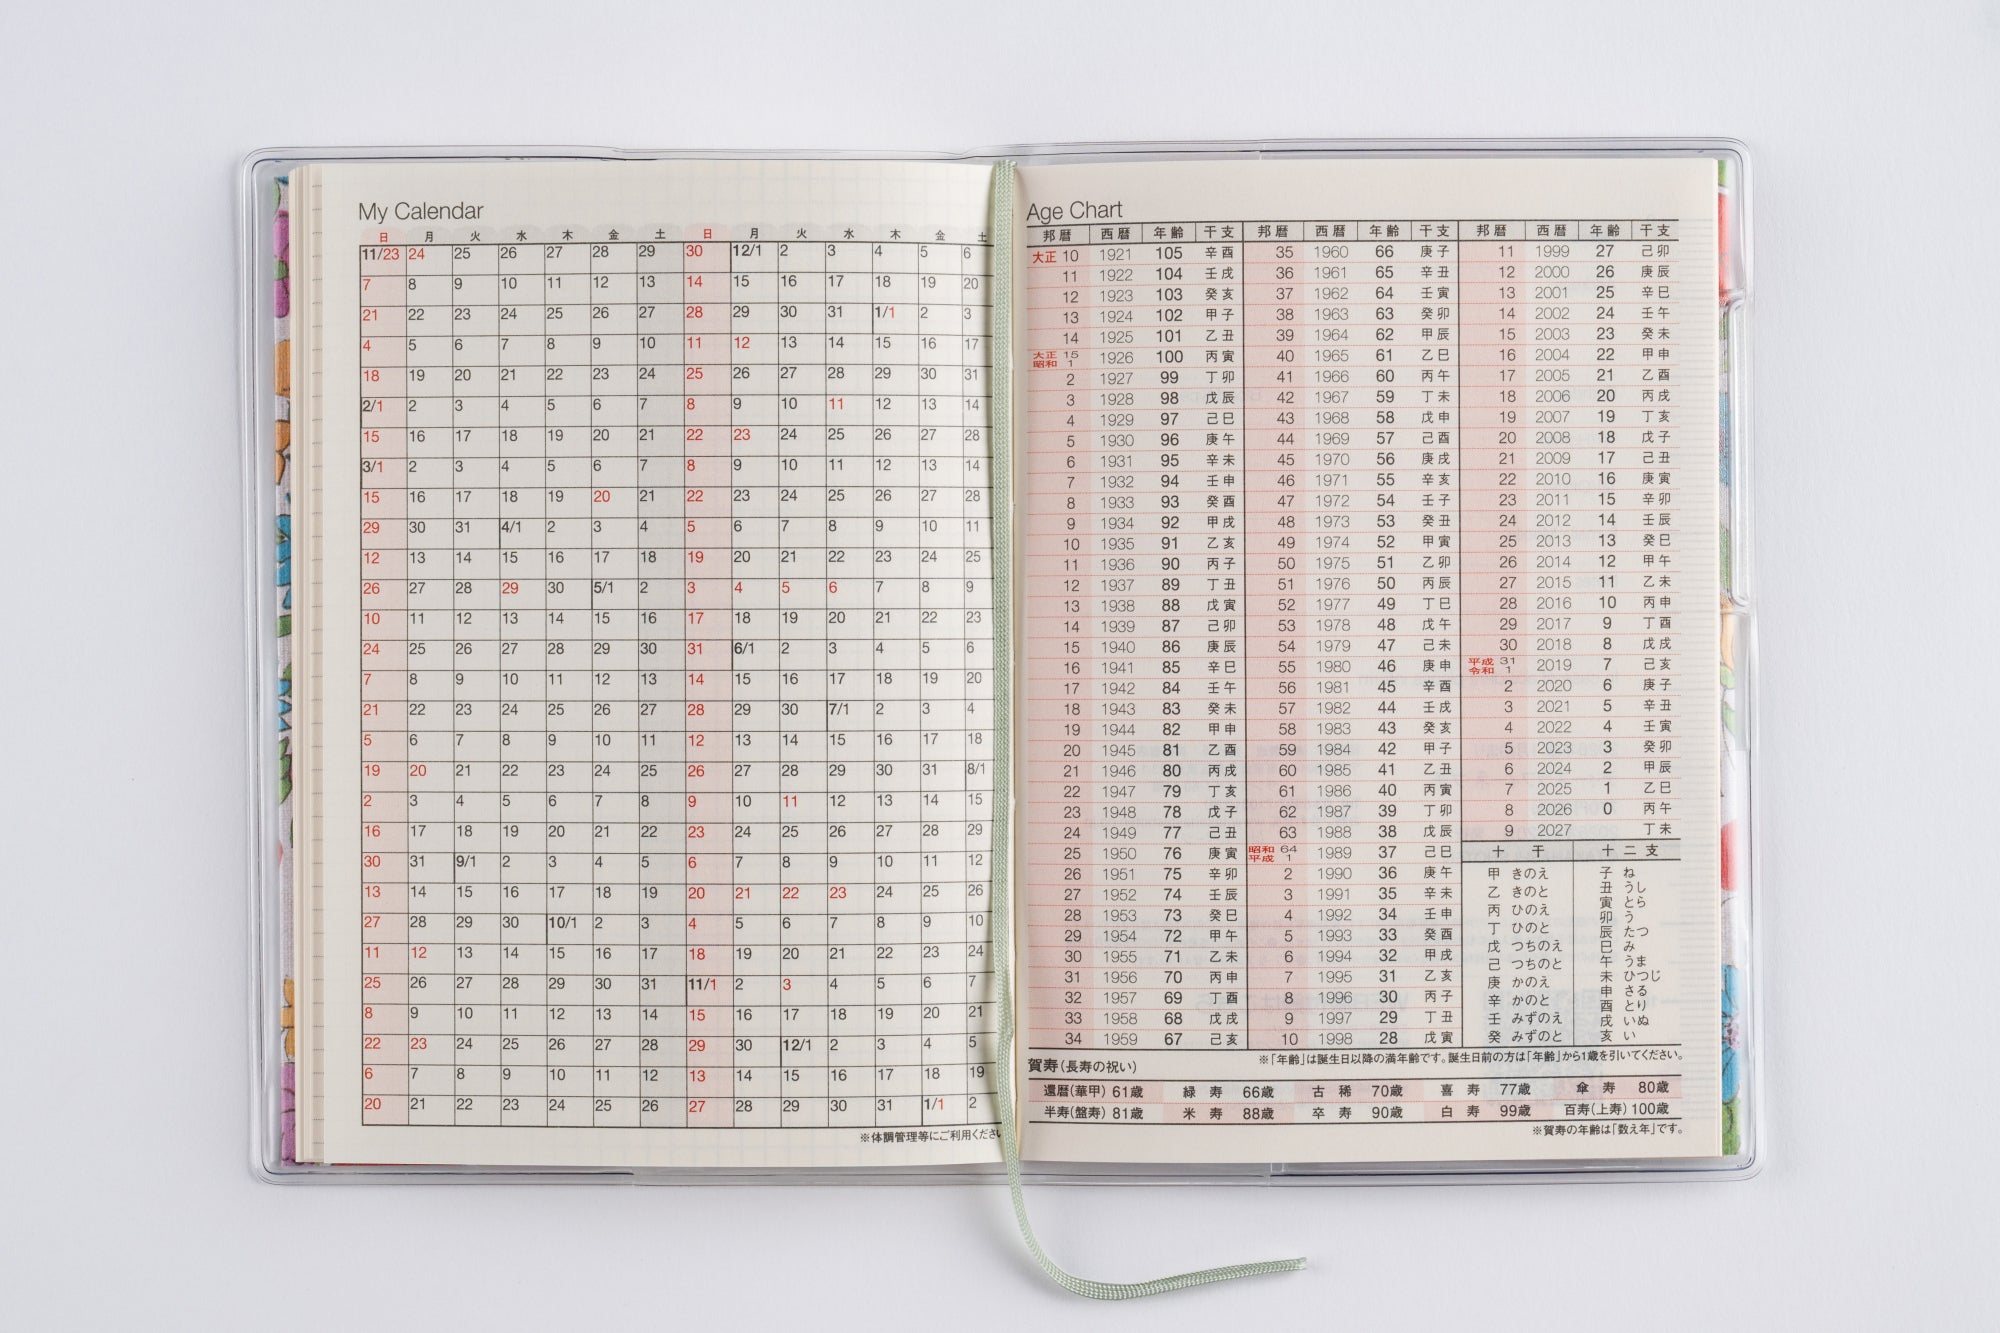 My Calendar
日 月 火 水 木 金 土 日 月 火 水 木 金 土
11/23 24 25 26 27 28 29 30 12/1 2 3 4 5 6
7 8 9 10 11 12 13 14 15 16 17 18 19 20
21 22 23 24 25 26 27 28 29 30 31 1/1 2 3
4 5 6 7 8 9 10 11 12 13 14 15 16 17
18 19 20 21 22 23 24 25 26 27 28 29 30 31
2/1 2 3 4 5 6 7 8 9 10 11 12 13 14
15 16 17 18 19 20 21 22 23 24 25 26 27 28
3/1 2 3 4 5 6 7 8 9 10 11 12 13 14
15 16 17 18 19 20 21 22 23 24 25 26 27 28
29 30 31 4/1 2 3 4 5 6 7 8 9 10 11
12 13 14 15 16 17 18 19 20 21 22 23 24 25
26 27 28 29 30 5/1 2 3 4 5 6 7 8 9
10 11 12 13 14 15 16 17 18 19 20 21 22 23
24 25 26 27 28 29 30 31 6/1 2 3 4 5 6
7 8 9 10 11 12 13 14 15 16 17 18 19 20
21 22 23 24 25 26 27 28 29 30 7/1 2 3 4
5 6 7 8 9 10 11 12 13 14 15 16 17 18
19 20 21 22 23 24 25 26 27 28 29 30 31 8/1
2 3 4 5 6 7 8 9 10 11 12 13 14 15
16 17 18 19 20 21 22 23 24 25 26 27 28 29
30 31 9/1 2 3 4 5 6 7 8 9 10 11 12
13 14 15 16 17 18 19 20 21 22 23 24 25 26
27 28 29 30 10/1 2 3 4 5 6 7 8 9 10
11 12 13 14 15 16 17 18 19 20 21 22 23 24
25 26 27 28 29 30 31 11/1 2 3 4 5 6 7
8 9 10 11 12 13 14 15 16 17 18 19 20 21
22 23 24 25 26 27 28 29 30 12/1 2 3 4 5
6 7 8 9 10 11 12 13 14 15 16 17 18 19
20 21 22 23 24 25 26 27 28 29 30 31 1/1 2
※体調管理等にご利用くださ
Age Chart
邦暦 西暦 年齢 干支 邦暦 西暦 年齢 干支 邦暦 西暦 年齢 干支
大正 10 1921 105 辛酉 35 1960 66 庚子 11 1999 27 己卯
11 1922 104 壬戌 36 1961 65 辛丑 12 2000 26 庚辰
12 1923 103 癸亥 37 1962 64 壬寅 13 2001 25 辛巳
13 1924 102 甲子 38 1963 63 癸卯 14 2002 24 壬午
14 1925 101 乙丑 39 1964 62 甲辰 15 2003 23 癸未
大正 15 昭和 1 1926 100 丙寅 40 1965 61 乙巳 16 2004 22 甲申
2 1927 99 丁卯 41 1966 60 丙午 17 2005 21 乙酉
3 1928 98 戊辰 42 1967 59 丁未 18 2006 20 丙戌
4 1929 97 己巳 43 1968 58 戊申 19 2007 19 丁亥
5 1930 96 庚午 44 1969 57 己酉 20 2008 18 戊子
6 1931 95 辛未 45 1970 56 庚戌 21 2009 17 己丑
7 1932 94 壬申 46 1971 55 辛亥 22 2010 16 庚寅
8 1933 93 癸酉 47 1972 54 壬子 23 2011 15 辛卯
9 1934 92 甲戌 48 1973 53 癸丑 24 2012 14 壬辰
10 1935 91 乙亥 49 1974 52 甲寅 25 2013 13 癸巳
11 1936 90 丙子 50 1975 51 乙卯 26 2014 12 甲午
12 1937 89 丁丑 51 1976 50 丙辰 27 2015 11 乙未
13 1938 88 戊寅 52 1977 49 丁巳 28 2016 10 丙申
14 1939 87 己卯 53 1978 48 戊午 29 2017 9 丁酉
15 1940 86 庚辰 54 1979 47 己未 30 2018 8 戊戌
16 1941 85 辛巳 55 1980 46 庚申 平成 31 令和 1 2019 7 己亥
17 1942 84 壬午 56 1981 45 辛酉 2 2020 6 庚子
18 1943 83 癸未 57 1982 44 壬戌 3 2021 5 辛丑
19 1944 82 甲申 58 1983 43 癸亥 4 2022 4 壬寅
20 1945 81 乙酉 59 1984 42 甲子 5 2023 3 癸卯
21 1946 80 丙戌 60 1985 41 乙丑 6 2024 2 甲辰
22 1947 79 丁亥 61 1986 40 丙寅 7 2025 1 乙巳
23 1948 78 戊子 62 1987 39 丁卯 8 2026 0 丙午
24 1949 77 己丑 63 1988 38 戊辰 9 2027 丁未
25 1950 76 庚寅 昭和 64 平成 1 1989 37 己巳
26 1951 75 辛卯 2 1990 36 庚午
27 1952 74 壬辰 3 1991 35 辛未
28 1953 73 癸巳 4 1992 34 壬申
29 1954 72 甲午 5 1993 33 癸酉
30 1955 71 乙未 6 1994 32 甲戌
31 1956 70 丙申 7 1995 31 乙亥
32 1957 69 丁酉 8 1996 30 丙子
33 1958 68 戊戌 9 1997 29 丁丑
34 1959 67 己亥 10 1998 28 戊寅
十干
甲 きのえ
乙 きのと
丙 ひのえ
丁 ひのと
戊 つちのえ
己 つちのと
庚 かのえ
辛 かのと
壬 みずのえ
癸 みずのと
十二支
子 ね
丑 うし
寅 とら
卯 う
辰 たつ
巳 み
午 うま
未 ひつじ
申 さる
酉 とり
戌 いぬ
亥 い
※「年齢」は誕生日以降の満年齢です。誕生日前の方は「年齢」から1歳を引いてください。
賀寿(長寿の祝い)
還暦(華甲) 61歳 緑寿 66歳 古稀 70歳 喜寿 77歳 傘寿 80歳
半寿(盤寿) 81歳 米寿 88歳 卒寿 90歳 白寿 99歳 百寿(上寿) 100歳
※賀寿の年齢は「数え年」です。